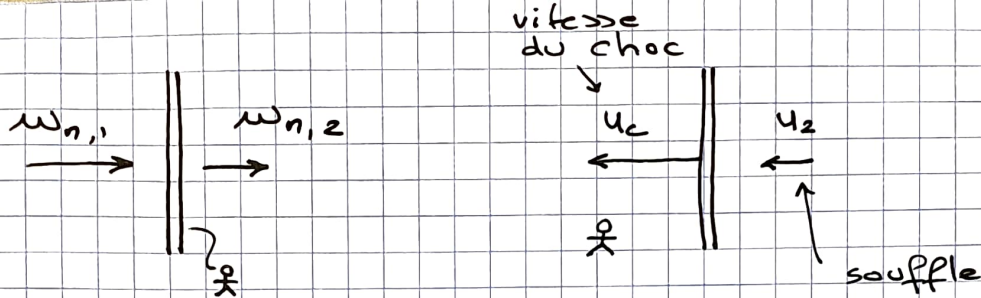 vitesse
du choc
w_{n,1}
w_{n,2}
u_c
u_2
souffle